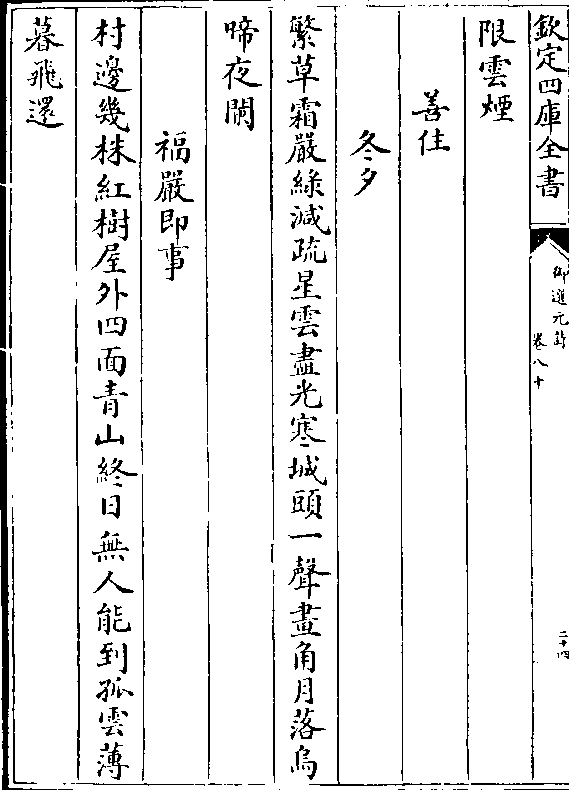 欽定四庫全書
御選元詩
卷八十
二十四
限雲煙
善住
冬夕
繁草霜嚴綠減疏星雲盡光寒城頭一聲畫角月落烏
啼夜闌
福嚴即事
村邊幾株紅樹屋外四面青山終日無人能到孤雲薄
暮飛還